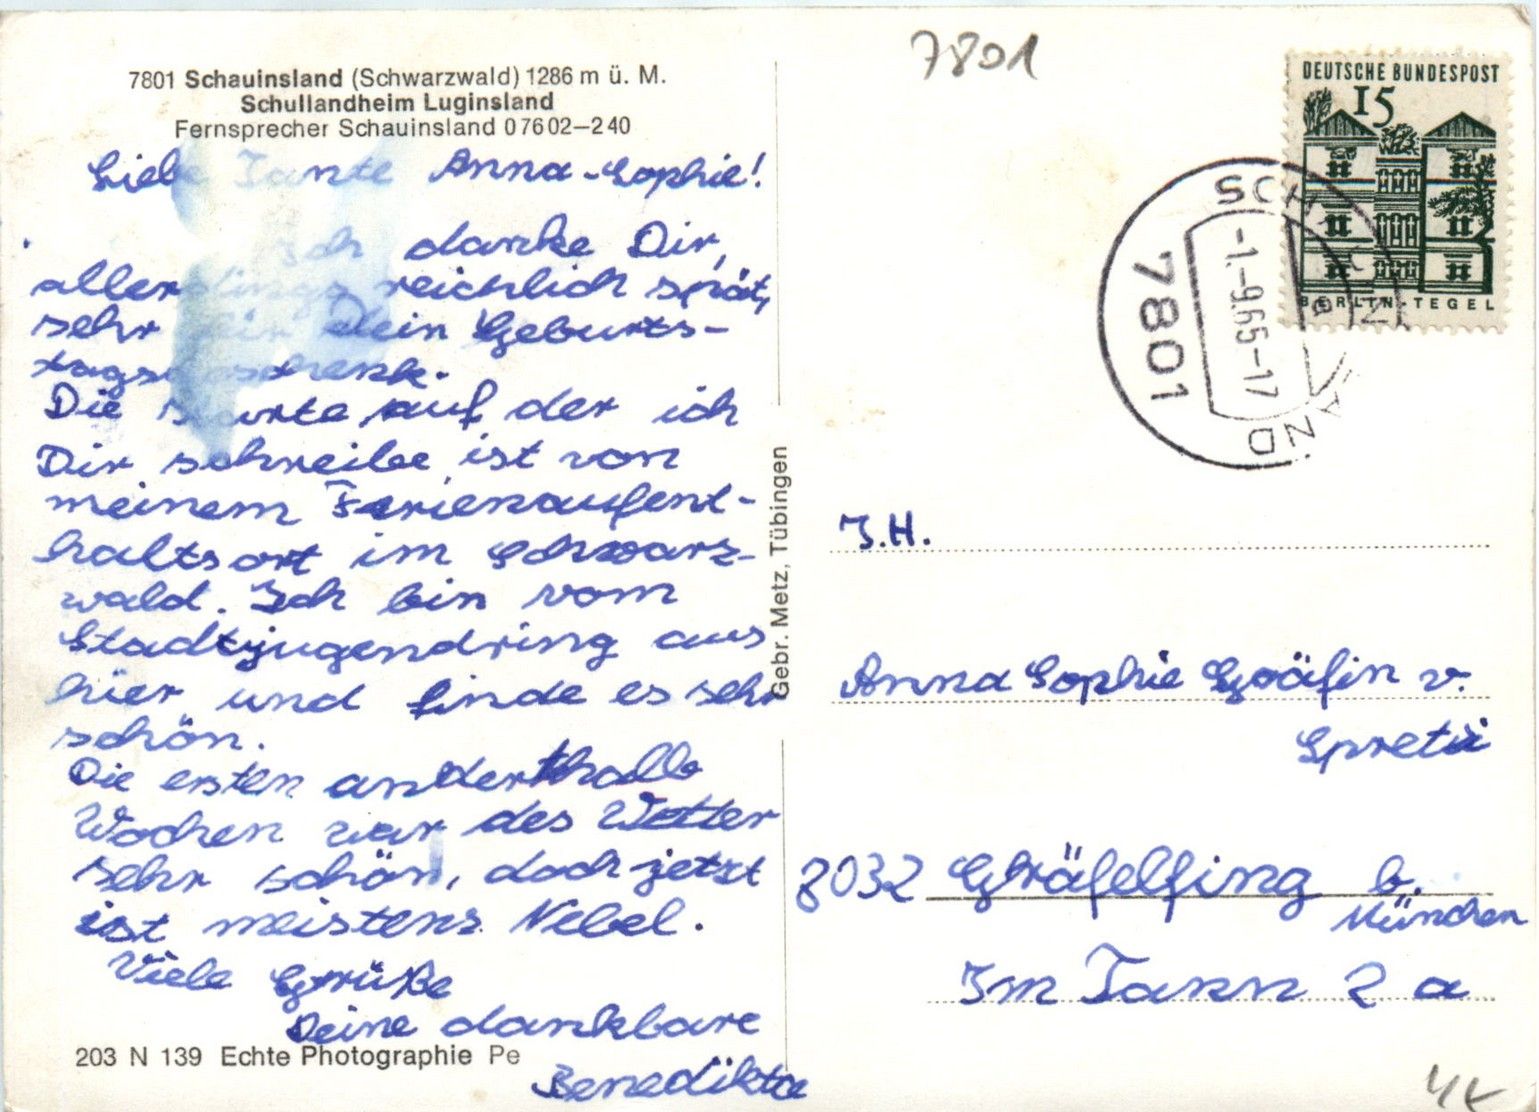 7801
7801 Schauinsland (Schwarzwald) 1286 m ü. M.
Schullandheim Luginsland
Fernsprecher Schauinsland 07602–240
Liebe Tante Anna-Sophie!
Ich danke Dir,
allerdings reichlich spät,
sehr für Dein Geburts-
tagsgeschenk.
Die Karte auf der ich
Dir schreibe ist von
meinem Ferienaufent-
haltsort im Schwarz-
wald. Ich bin vom
Stadtjugendring aus
hier und finde es sehr
schön.
Die ersten anderthalb
Wochen war des Wetter
sehr schön, doch jetzt
ist meistens Nebel.
Viele Grüße
Deine dankbare
Benedikta
203 N 139 Echte Photographie Pe
Gebr. Metz, Tübingen
DEUTSCHE BUNDESPOST
15
BERLIN-TEGEL
SCH
LAND
-1.-9.65-17
7801
a
I.H.
Anna Sophie Gräfin v.
Spreti
8032 Gräfelfing b.
München
Im Tann 2 a